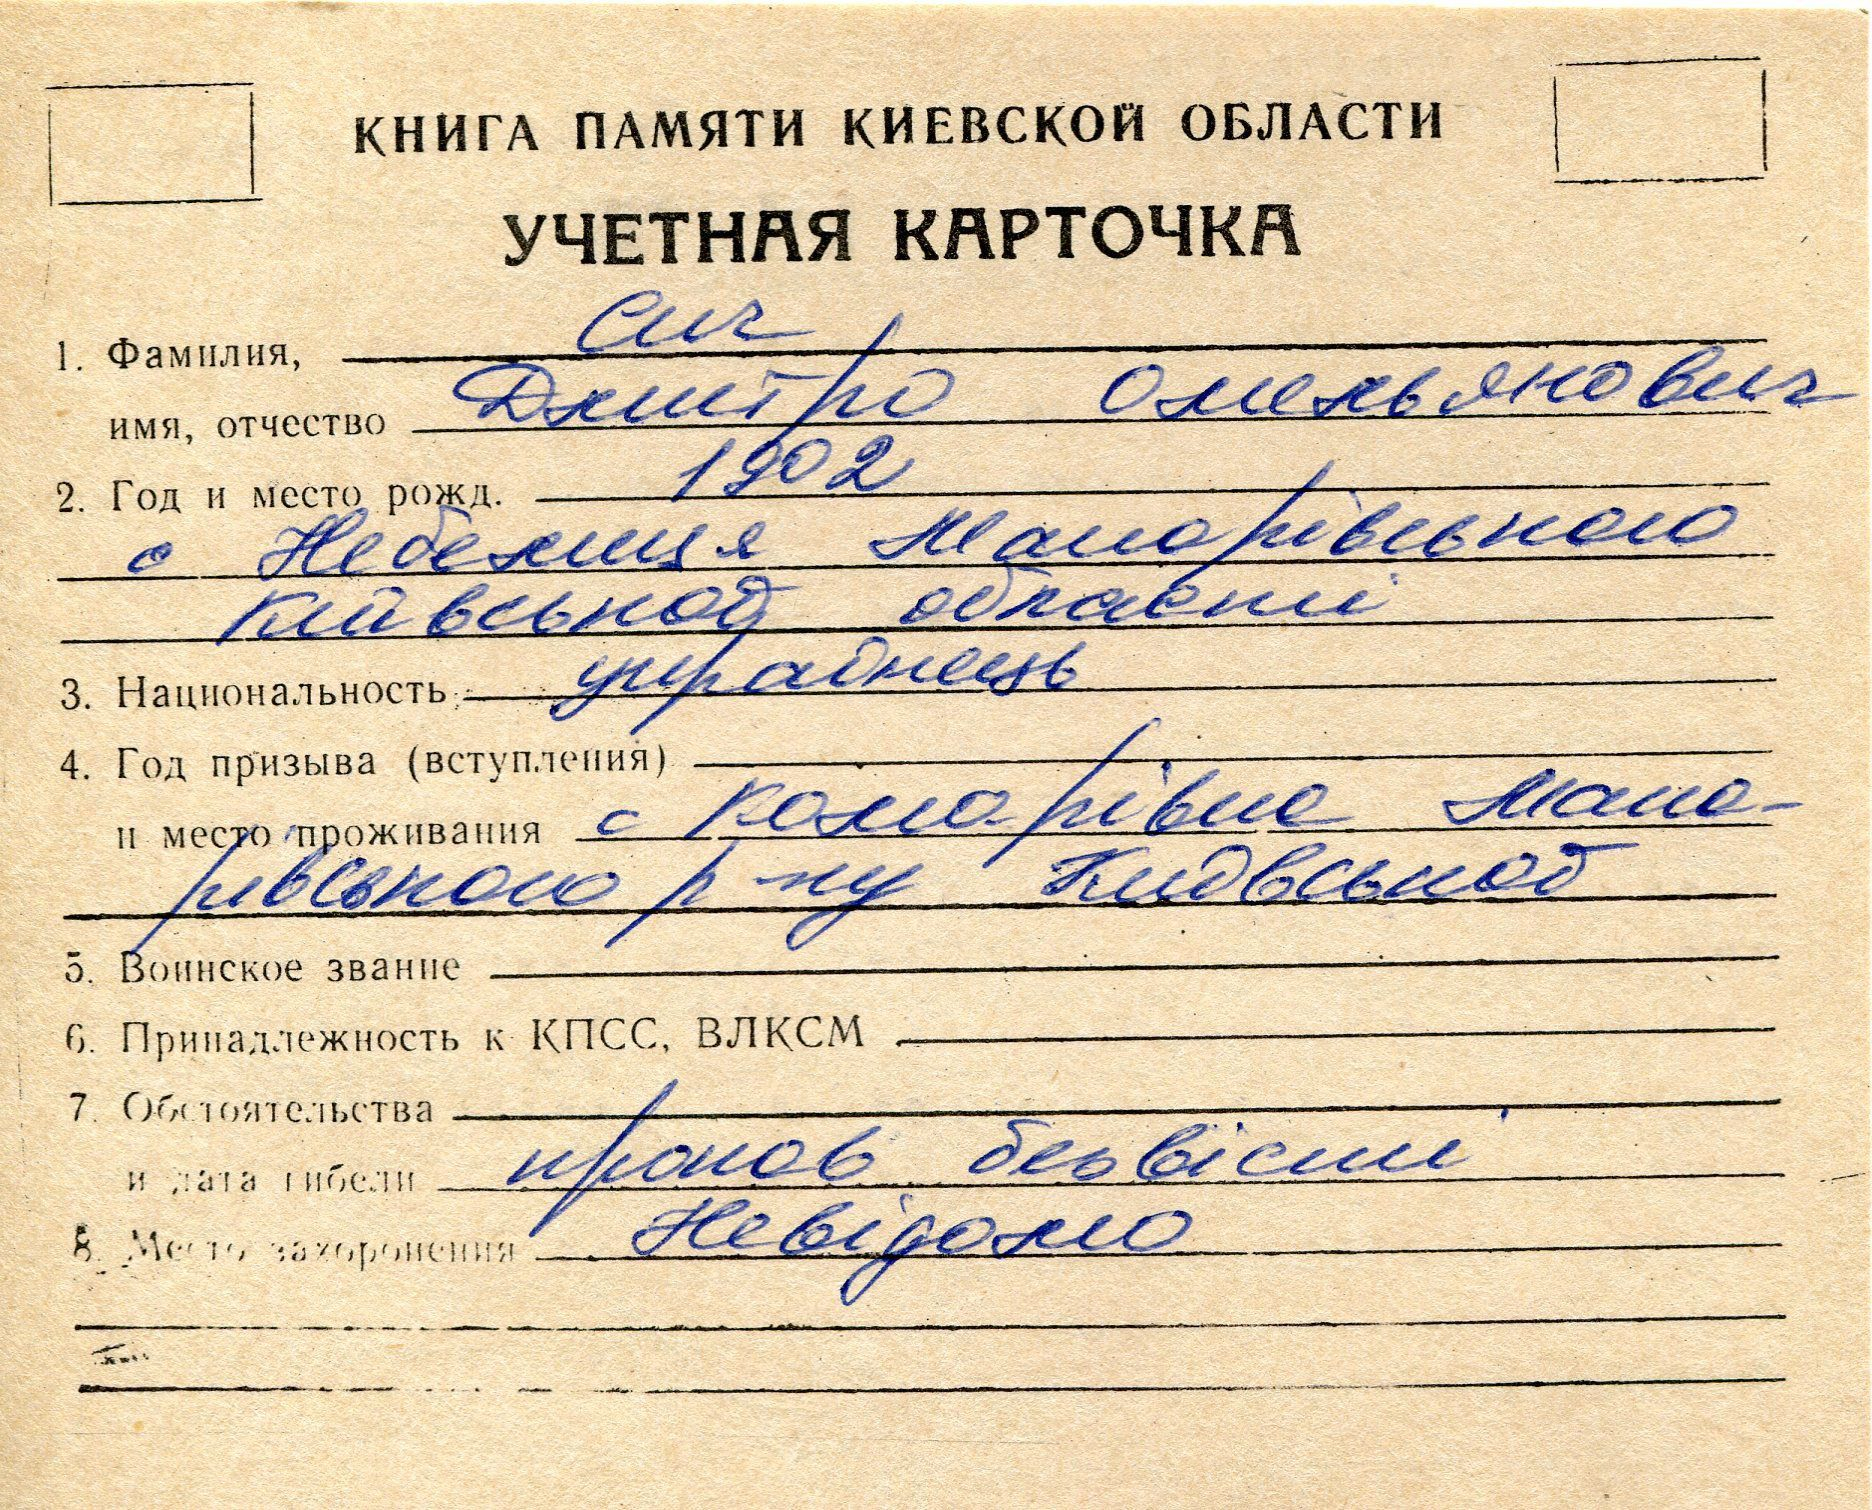 КНИГА ПАМЯТИ КИЕВСКОЙ ОБЛАСТИ
УЧЕТНАЯ КАРТОЧКА
1. Фамилия, Сич
имя, отчество Дмитро Омельянович
2. Год и место рожд. 1902
с Небелиця Макарівського
Київської області
3. Национальность українець
4. Год призыва (вступления)
и место проживания с Комарівка Мака-
рівського р-ну Київської
5. Воинское звание
6. Принадлежность к КПСС, ВЛКСМ
7. Обстоятельства
и дата гибели пропав безвісті
8. Место захоронения Невідомо